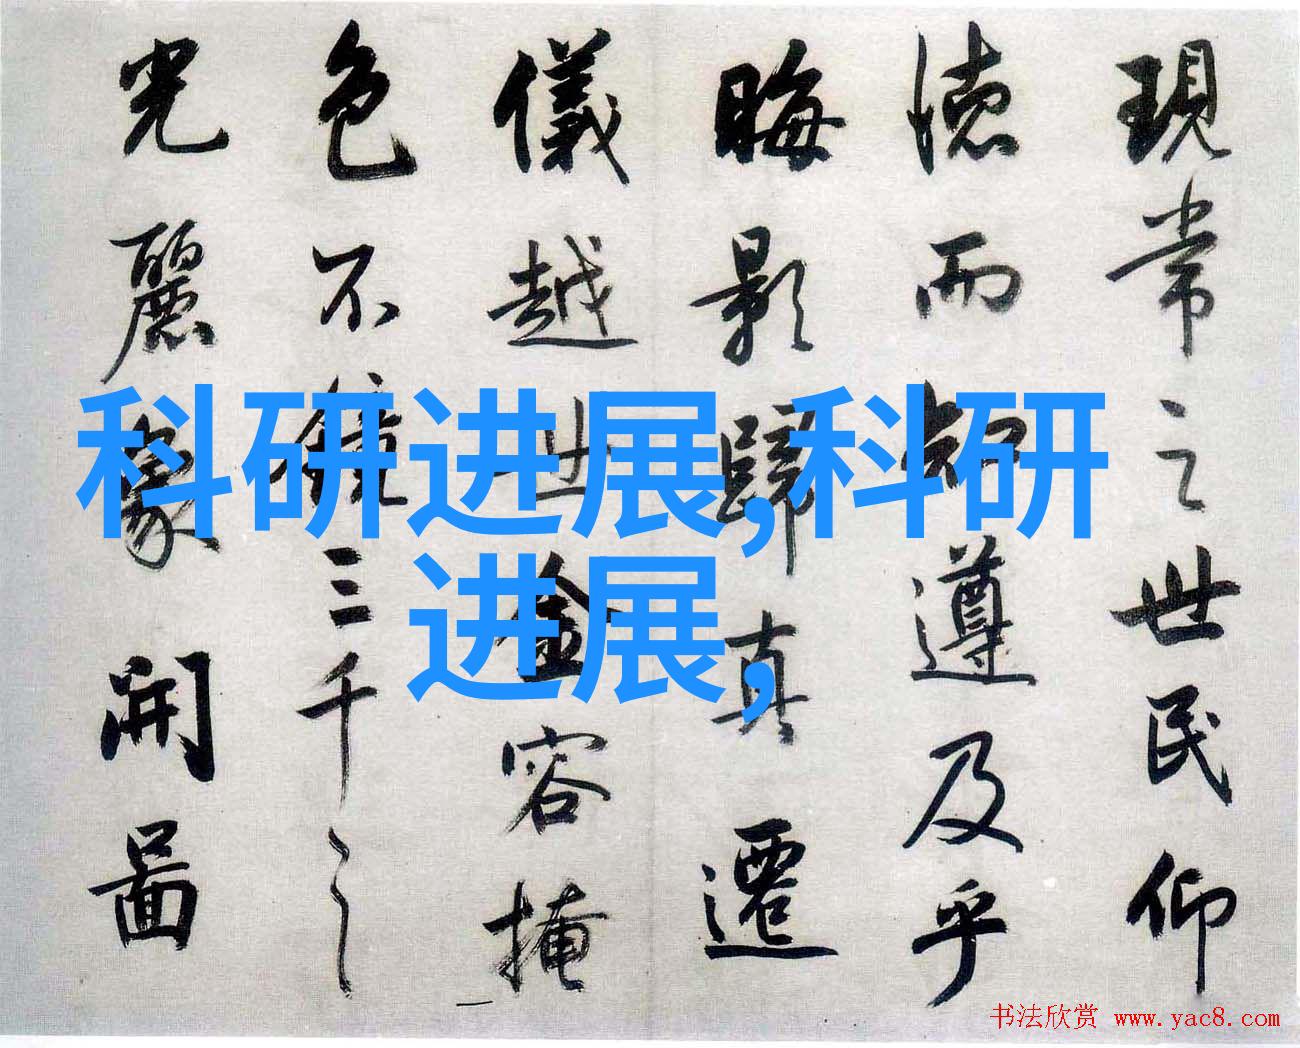 現常之世民仰
德而知遵及乎
晦影歸真遷
儀越世金容掩
色不鏡三千之
光麗象開圖
科研进展,科研
进展,
书法欣赏 www.yac8.com